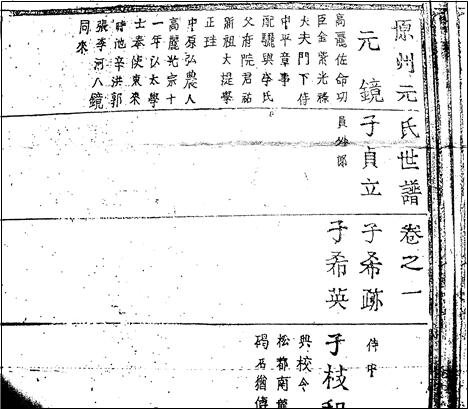 原州元氏世譜 卷之一
元鏡
高麗佐命功
臣金紫光祿
大夫門下侍
中平章事
配驪興李氏
父府院君祐
新祖大提學
正珪
中原弘農人
高麗光宗十
一年以太學
士奉使東來
時池辛洪郭
張李河八鏡
同來
子貞立
員外郎
子希跡
侍中
子希英
子枝和
興校令
松都南麓
碣石